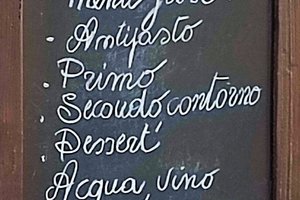 Menu
· Antipasto
· Primo
· Secondo contorno
· Dessert
Acqua, vino